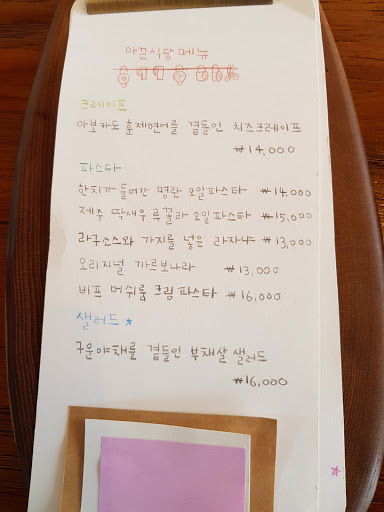 아끈식당메뉴
크레이프
아보카도 훈제연어를 곁들인 치즈크레이프
₩14,000
파스타
한치가 들어간 명란 오일파스타 ₩14,000
제주 딱새우 루꼴라 오일파스타 ₩15,000
라구소스와 가지를 넣은 라자냐 ₩13,000
오리지널 까르보나라 ₩13,000
비프 머쉬룸 크림파스타 ₩16,000
샐러드
구운야채를 곁들인 부채살 샐러드
₩16,000